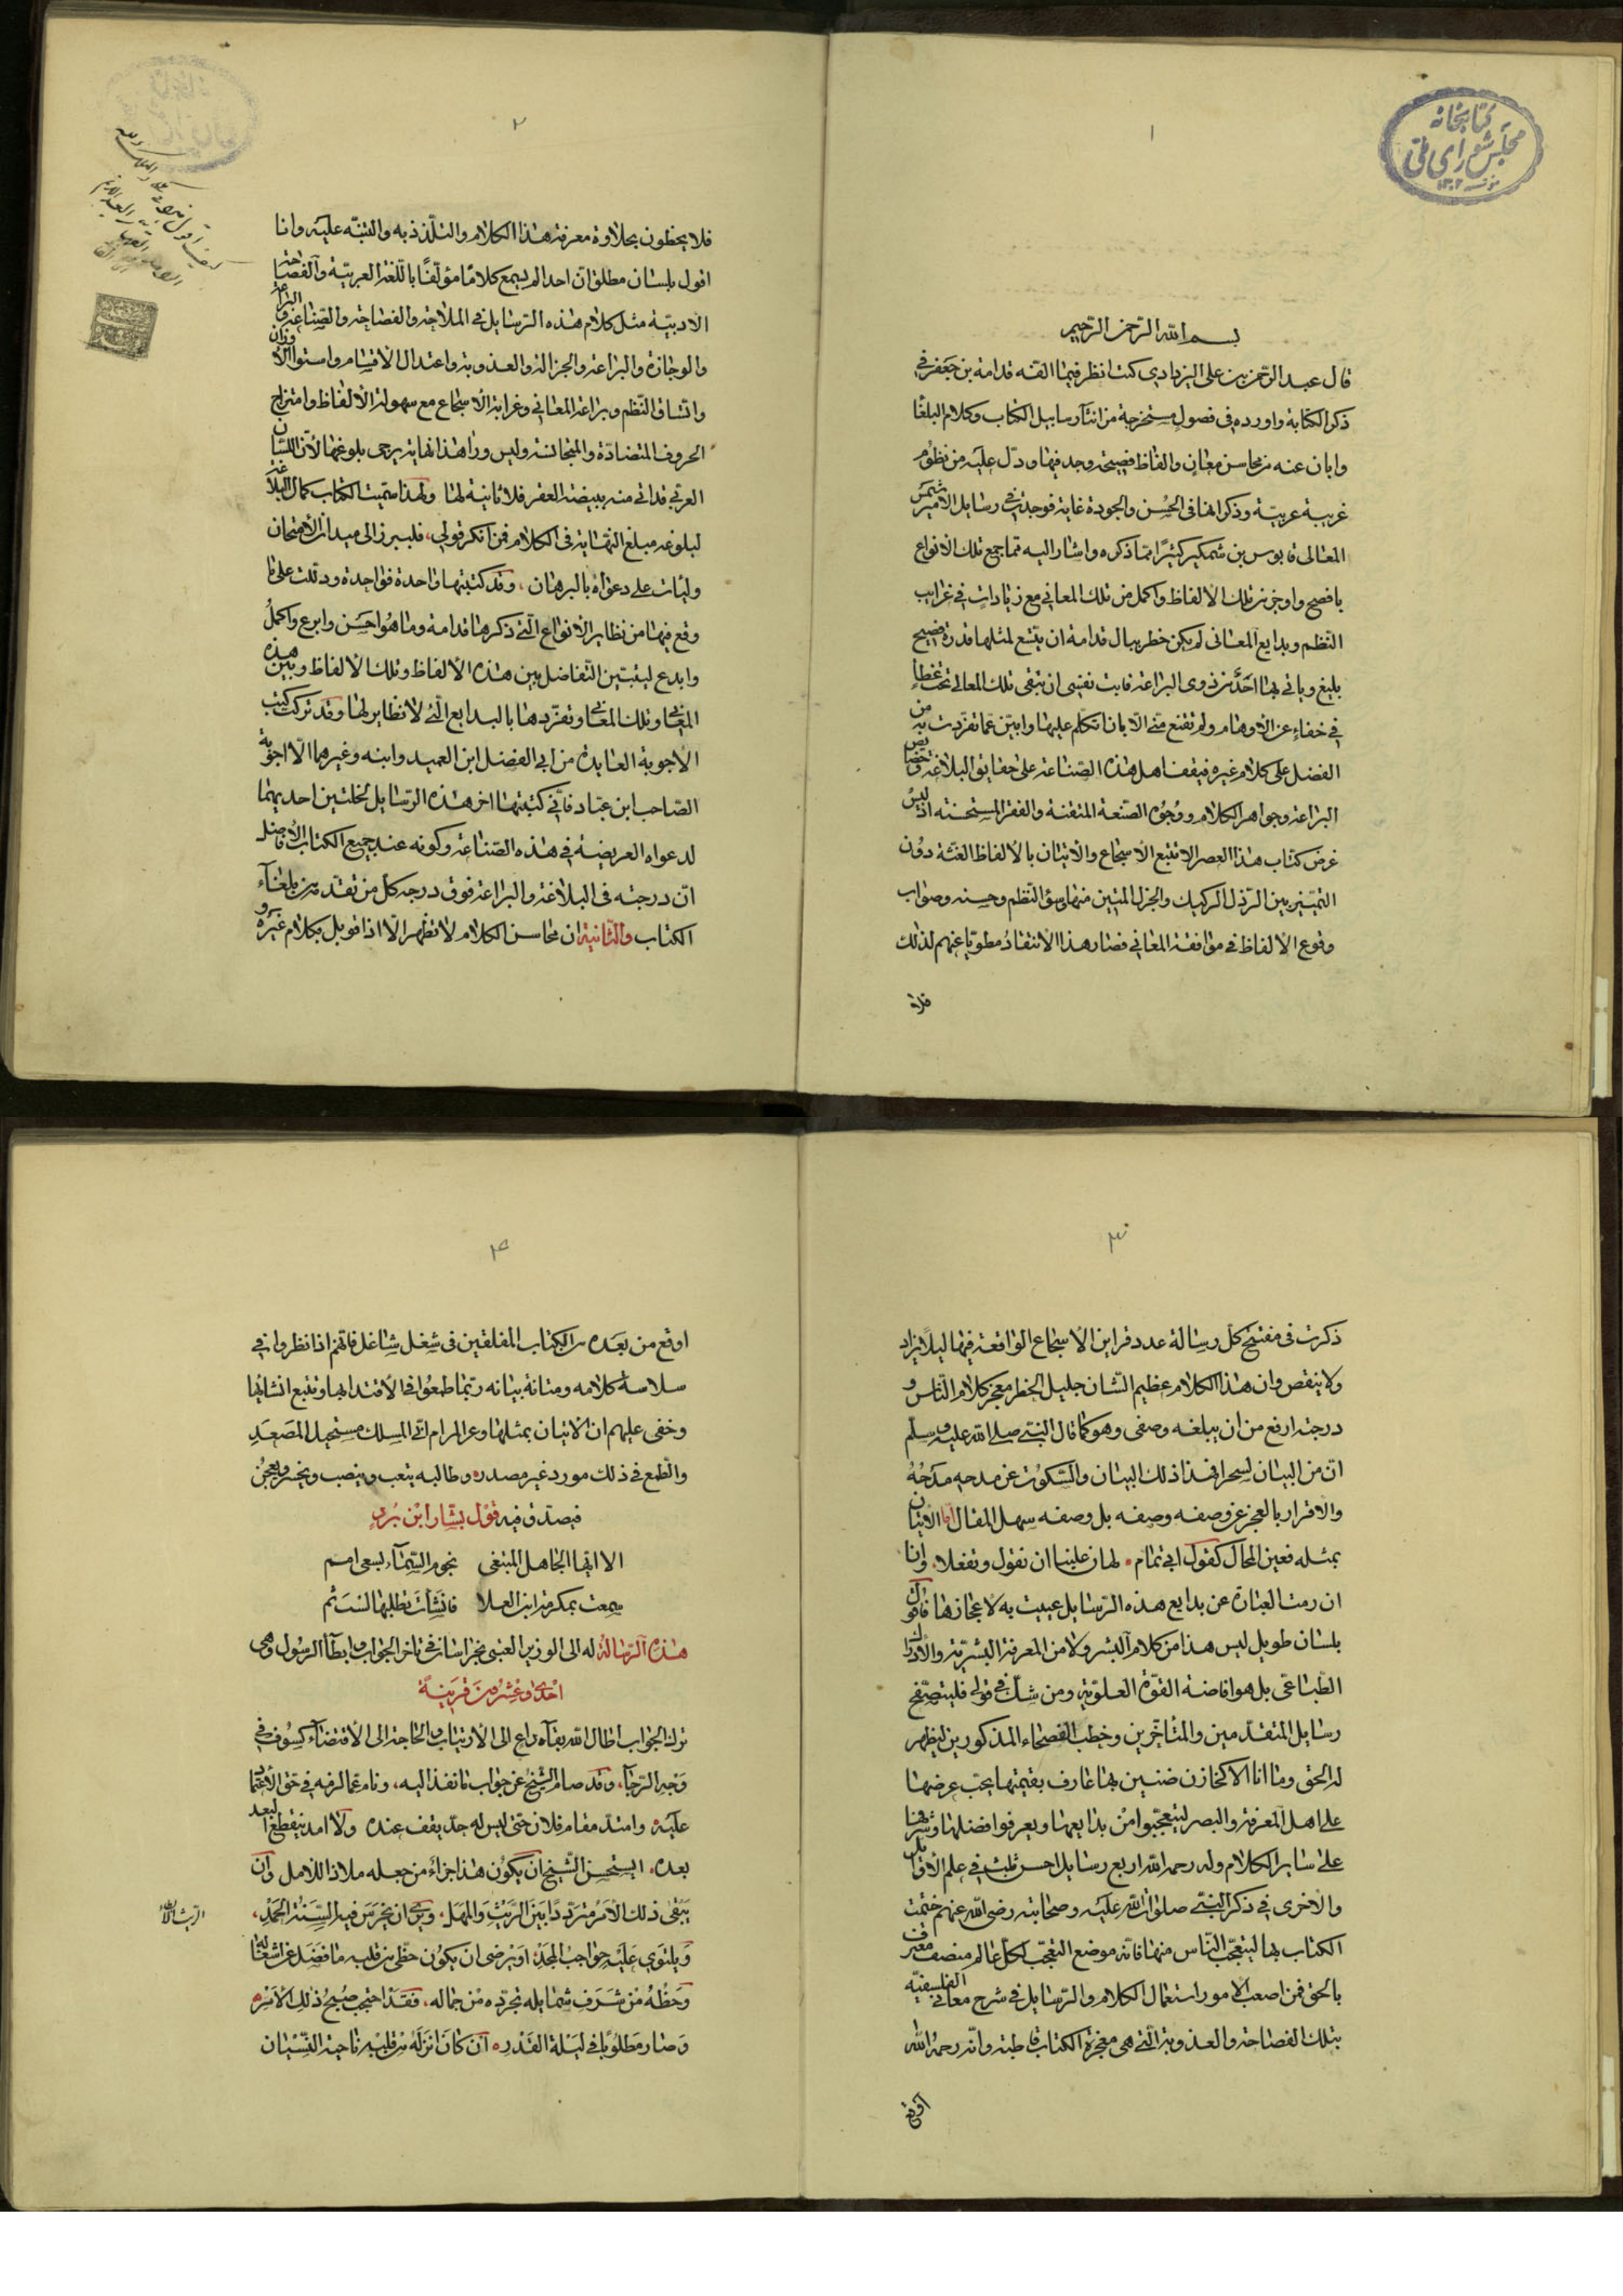 كتابخانه
مجلس شورای ملی
١
بسم الله الرحمن الرحيم
قال عبد الرحمن بن على اليزدادي كنت انظر فيما الفه قدامة بن جعفر في
ذكر الكتابة واورده في فصول مستخرجة من انشآء رسايل الكتاب وكلام البلغا
وابان عنه من محاسن معان والفاظ فصيحة وجد فيها ودل عليه من نظوم
غريبة عربية وذكر انها في الحسن والجودة غاية فوجدت في رسايل الامير شمس
المعالى قابوس بن شمكير كثيرًا مما ذكره واشار اليه مما جمع تلك الانواع
بافصح واوجز من تلك الالفاظ واكمل من تلك المعاني مع زيادات في غرايب
النظم وبدايع المعانى لم يكن خطر ببال قدامة ان يتسع لمثلها قدرة فصيح
بليغ وياتي بها احد من ذوى البراعة فابت نفسى ان تبقى تلك المعالى تحت غطاء
في خفاء عن الاوهام ولم تقنع منى الا بان اتكلم عليها وابين عما تفردت به من
الفضل على كلام غيره فيقف اهل هذه الصناعة على حقايق البلاغة وخصايص
البراعة وجواهر الكلام ووجوه الصنعة المتقنة والفقر المستحسنة اذ ليس
غرض كتاب هذا العصر الا تتبع الاسجاع والاتيان بالالفاظ الغثة دون
التمييز بين الرذل الركيك والجزل المتين منها وسوء النظم وحسنه وصواب
وقوع الالفاظ في موافقة المعاني فصار هذا الانتقاد مطويا عنهم لذلك
فلا
٢
فلا يحظون بحلاوة معرفة هذا الكلام والتلذذ به والتنبه عليه وانا
اقول بلسان مطلق ان احدا لم يسمع كلامًا مؤلفًا باللغة العربية والفصاحة
الادبية مثل كلام هذه الرسايل في الملاحة والفصاحة والصناعة والبراعة
والوجازة والبراعة والجزالة والعذوبة واعتدال الاقسام واستواء الاوزان
واتساق النظم وبراعة المعاني وغرابة الاسجاع مع سهولة الالفاظ وامتزاج
الحروف المتضادة والمتجانسة وليس وراء هذا نهاية يرجى بلوغها لان اللسان
العربي قد اتى منه ببيضة العقر فلا ثانية لها ولهذا سميت الكتاب كمال البلاغة
لبلوغه مبلغ النهاية في الكلام فمن انكر قولي فليبرز الى ميدان الامتحان
وليأت على دعواه بالبرهان وقد كتبتها واحدة فواحدة ودللت على ما
وقع فيها من نظاير الانواع التى ذكرها قدامة وما هو احسن وابرع واكمل
وابدع ليتبين التفاضل بين هذه الالفاظ وتلك الالفاظ وبين هذه
المعاني وتلك المعاني وتفردها بالبدايع التى لا نظاير لها وقد تركت كتب
الاجوبة العايدة من ابي الفضل ابن العميد وابنه وغيرهما الا اجوبة
الصاحب ابن عباد فاني كتبتها اخر هذه الرسايل لخلتين احديهما
لدعواه العريضة في هذه الصناعة وكونه عند جميع الكتاب الافاضل
ان درجته في البلاغة والبراعة فوق درجة كل من تقدم من بلغآء
الكتاب والثانية ان محاسن الكلام لا تظهر الا اذا قوبل بكلام غيره و
٣
ذكرت في مفتتح كل رسالة عدد قراين الاسجاع الواقعة فيها ليلا يزاد
ولا ينقص وان هذا الكلام عظيم الشان جليل الخطر معجز كلام الناس و
درجته ارفع من ان يبلغه وصفى وهو كما قال النبي صلى الله عليه وسلم
ان من البيان لسحرا فهذا ذلك البيان والسكوت عن مدحه مدحه
والاقرار بالعجز عن وصفه وصفه بل وصفه سهل المقال اما الاتيان
بمثله فعين المحال كقول ابي تمام لهان علينا ان نقول وتفعلا وانا
ان رمت العبارة عن بدايع هذه الرسايل عييت به لاعجازها فاقول
بلسان طويل ليس هذا من كلام البشر ولا من المعرفة البشرية والادراك
الطباعي بل هو افاضة القوة العلوية ومن شك في قولي فليتصفح
رسايل المتقدمين والمتأخرين وخطب الفصحاء المذكورين ليظهر
له الحق وما انا الا كخازن ضنين بها عارف بقيمتها يحب عرضها
على اهل المعرفة والبصر ليتعجبوا من بدايعها ويعرفوا فضلها وشرفها
على ساير الكلام وله رحمه الله اربع رسايل احسن ثلث في علم الاوايل
والاخرى في ذكر النبي صلوات الله عليه وصحابته رضى الله عنهم ختمت
الكتاب بها ليتعجب الناس منها فانه موضع التعجب لكل عالم منصف معترف
بالحق فمن اصعب الامور استعمال الكلام والرسايل في شرح معاني الفلسفية
بتلك الفصاحة والعذوبة التى هى معجزة الكتاب قاطبة وانه رحمه الله
اوقع
٤
اوقع من بعده من الكتاب المفلقين في شغل شاغل فانهم اذا نظروا في
سلاسة كلامه ومتانة بيانه ربما طمعوا في الاقتداء بها وتتبع انشائها
وخفى عليهم ان الاتيان بمثلها وعر المرام ابي المسلك مستحيل المصعد
والطمع في ذلك مورد غير مصدره وطالبه يتعب وينصب ويخسر ويعجز
فيصدق فيه قول بشار ابن برد
الا ايها الجاهل المبتغى نجوم السمآء بسعى امم
سمعت بمكرمة ابن العلا فانشات تطلبها لست ثم
هذه الرسالة له الى الوزير العتبى بخراسان في تاخر الجواب وابطآ الرسول وهى
احدى وعشرون قرينة
ترك الجواب اطال الله بقآه داع الى الارتياب والحاجة الى الاقتضآء كسوف في
وجه الرجآ، وقد صام الشيخ عن جواب ما نفذ اليه، ونام عما لزمه في حق الاعتماد
عليه وامتد مقام فلان حتى ليس له حد يقف عنده ولا امد ينقطع البعد
بعده، ايستحسن الشيخ ان يكون هذا جزاء من جعله ملاذا للامل وان
يبقى ذلك الامر مترددًا بين الريث والمهل، وان يخرس فيه السنة الحمد،
ويلتوي عليه حواجب المجد، او يرضى ان يكون حظى من قلبه ما فضل عن اشغاله
وحظه من شرف شمايله تجرده من جماله، فقد احتجب صبح ذلك الامر
وصار مطلوبا في ليلة القدر ان كان انزله من قلبه ناحية النسيان